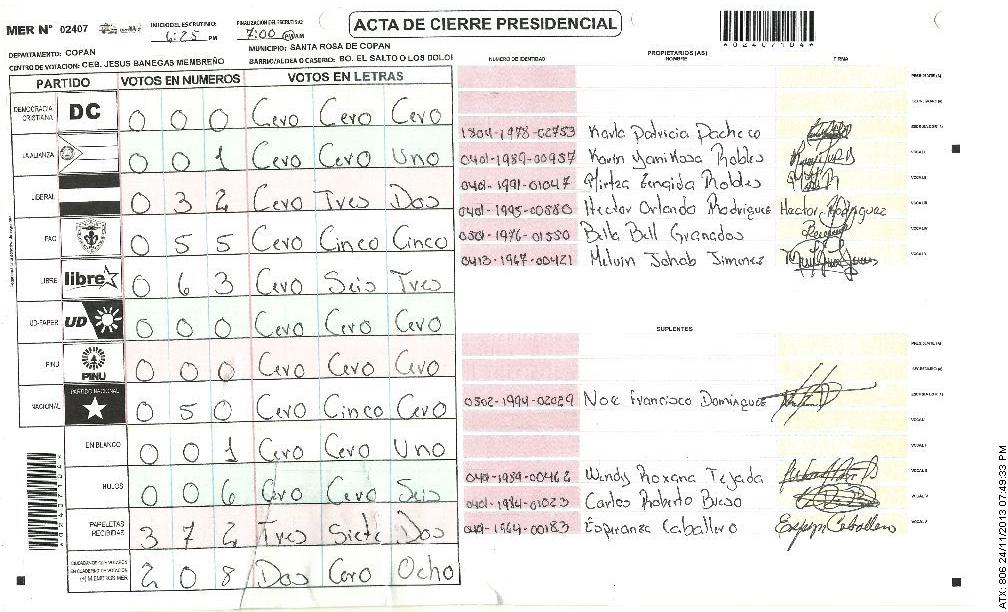 ACTA DE CIERRE PRESIDENCIAL
MER N° 02407
INICIO DEL ESCRUTINIO: 6:25 PM
FINALIZACION DEL ESCRUTINIO: 7:00 PM AM
*02407104*
DEPARTAMENTO: COPAN
MUNICIPIO: SANTA ROSA DE COPAN
CENTRO DE VOTACION: CEB. JESUS BANEGAS MEMBREÑO
BARRIO/ALDEA O CASERIO: BO. EL SALTO O LOS DOLOI
PARTIDO VOTOS EN NUMEROS VOTOS EN LETRAS
DEMOCRACIA CRISTIANA DC 0 0 0 Cero Cero Cero
LA ALIANZA 0 0 1 Cero Cero Uno
LIBERAL 0 3 2 Cero Tres Dos
PAC 0 5 5 Cero Cinco Cinco
LIBRE libre 0 6 3 Cero Seis Tres
UD-FAPER UD 0 0 0 Cero Cero Cero
PINU PINU 0 0 0 Cero Cero Cero
NACIONAL PARTIDO NACIONAL 0 5 0 Cero Cinco Cero
EN BLANCO 0 0 1 Cero Cero Uno
NULOS 0 0 6 Cero Cero Seis
PAPELETAS RECIBIDAS 3 7 2 Tres Siete Dos
(+) MIEMBROS MER 2 0 8 Dos Cero Ocho
*02407104*
PROPIETARIOS (AS)
NUMERO DE IDENTIDAD NOMBRE FIRMA
PRESIDENTE (A)
SECRETARIO (A)
1804-1978-02753 Karla Patricia Pacheco ESCRUTADOR (A)
0401-1989-00957 Karin Yamileth Robles VOCAL I
0401-1991-01047 Mirtza Zenaida Robles VOCAL II
0401-1995-00880 Hector Orlando Rodriguez Hector Rodriguez VOCAL III
0501-1976-01550 Bella Bell Granados VOCAL IV
0413-1967-00421 Melvin Johab Jimenez VOCAL V
SUPLENTES
PRESIDENTE (A)
SECRETARIO (A)
0502-1994-02029 Noe Francisco Dominguez ESCRUTADOR (A)
VOCAL I
VOCAL II
0401-1989-00462 Wendy Roxana Tejada VOCAL III
0401-1984-01023 Carlos Roberto Bueso VOCAL IV
0401-1964-00183 Esperanza Caballero VOCAL V
ATX: 806 24/11/2013 07:49:33 PM